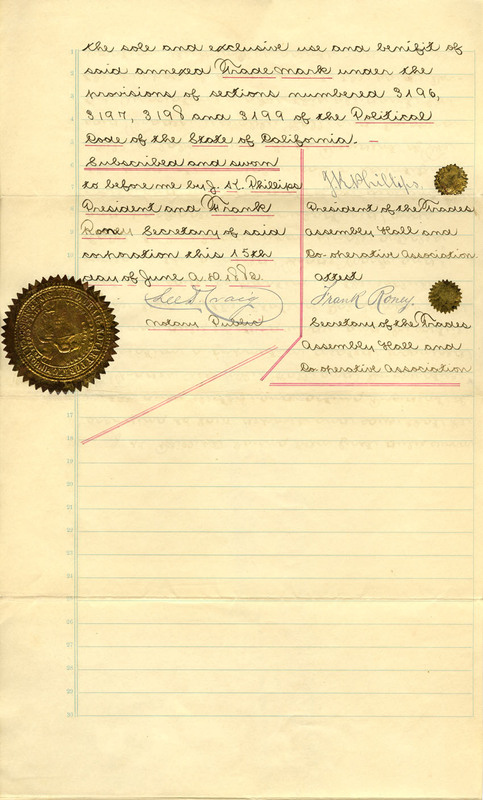 the sole and exclusive use and benifit of
said annexed Trade mark under the
provisions of sections numbered 3196,
3197, 3198 and 3199 of the Political
Code of the State of California. –
Subscribed and sworn
to before me by J. K. Phillips
President and Frank
Roney Secretary of said
corporation this 15th
day of June A.D. 1882.
Lee D. Craig
Notary Public
J K Phillips,
President of the Trades
Assembly Hall and
Co-operative Association
attest
Frank Roney.
Secretary of the Trades
Assembly Hall and
Co-operative Association
17
18